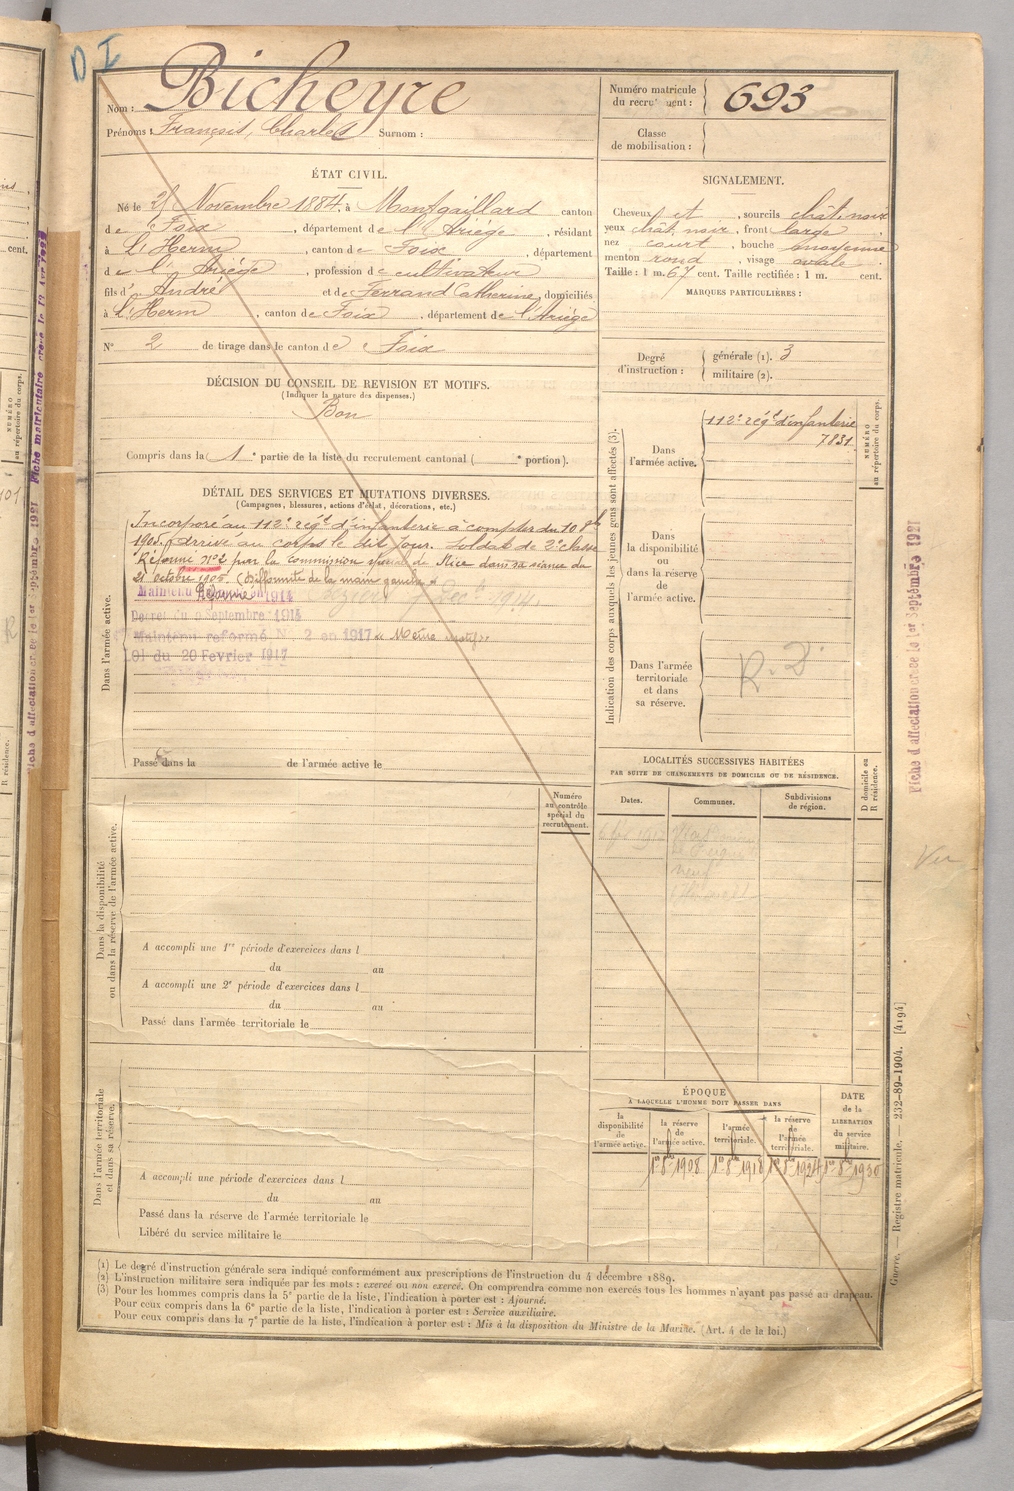 D I
Nom : Bicheyre
Prénoms : François, Charles Surnom :
Numéro matricule
du recrutement : 693
Classe
de mobilisation :
ÉTAT CIVIL.
Né le 21 Novembre 1884, à Montgaillard canton
de Foix, département de l'Ariège, résidant
à L'Herm, canton de Foix, département
de l'Ariège, profession de cultivateur
fils d' André et de Ferrand Catherine, domiciliés
à L'Herm, canton de Foix, département de l'Ariège
N° 2 de tirage dans le canton de Foix
SIGNALEMENT.
Cheveux et, sourcils chât. noir
yeux chât. noir, front large
nez court, bouche moyenne
menton rond, visage ovale
Taille : 1 m. 67 cent. Taille rectifiée : 1 m. cent.
MARQUES PARTICULIÈRES :
Degré
d'instruction :
générale (1). 3
militaire (2).
DÉCISION DU CONSEIL DE REVISION ET MOTIFS.
(Indiquer la nature des dispenses.)
Bon
Compris dans la 1e partie de la liste du recrutement cantonal ( e portion).
DÉTAIL DES SERVICES ET MUTATIONS DIVERSES.
(Campagnes, blessures, actions d'éclat, décorations, etc.)
Dans l'armée active.
Incorporé au 112e régt d'infanterie à compter du 10 8bre
1905, arrivé au corps le dit jour. Soldat de 2e classe
Réformé n°2 par la commission spéciale de Nice dans sa séance du
21 octobre 1905. (Difformité de la main gauche)
Maintenu Réformé 1914
Décret du 9 Septembre 1914
Maintenu réformé N° 2 en 1917 Même motif
Loi du 20 Février 1917
Passé dans la de l'armée active le
Indication des corps auxquels les jeunes gens sont affectés (3).
NUMÉRO
au répertoire du corps.
Dans
l'armée active.
112e régt d'infanterie
7831
Dans
la disponibilité
ou
dans la réserve
de
l'armée active.
Dans l'armée
territoriale
et dans
sa réserve.
R. 2
LOCALITÉS SUCCESSIVES HABITÉES
PAR SUITE DE CHANGEMENTS DE DOMICILE OU DE RÉSIDENCE.
Dates.
Communes.
Subdivisions
de région.
D domicile ou
R résidence.
Dans la disponibilité
ou dans la réserve de l'armée active.
Numéro
au contrôle
spécial du
recrutement.
A accompli une 1re période d'exercices dans l
du au
A accompli une 2e période d'exercices dans l
du au
Passé dans l'armée territoriale le
Dans l'armée territoriale
et dans sa réserve.
A accompli une période d'exercices dans l
du au
Passé dans la réserve de l'armée territoriale le
Libéré du service militaire le
ÉPOQUE
À LAQUELLE L'HOMME DOIT PASSER DANS
la
disponibilité
de
l'armée active.
la réserve
de
l'armée active.
l'armée
territoriale.
la réserve
de
l'armée
territoriale.
DATE
de la
LIBÉRATION
du service
militaire.
1er 8bre 1908
1er 8bre 1918
1er 8bre 1924
1er 8bre 1930
(1) Le degré d'instruction générale sera indiqué conformément aux prescriptions de l'instruction du 4 décembre 1889.
(2) L'instruction militaire sera indiquée par les mots : exercé ou non exercé. On comprendra comme non exercés tous les hommes n'ayant pas passé au drapeau.
(3) Pour les hommes compris dans la 5e partie de la liste, l'indication à porter est : Ajourné.
Pour ceux compris dans la 6e partie de la liste, l'indication à porter est : Service auxiliaire.
Pour ceux compris dans la 7e partie de la liste, l'indication à porter est : Mis à la disposition du Ministre de la Marine. (Art. 4 de la loi.)
Fiche d'affectation créée le 1er Septembre 1921
Vu
Guerre. — Registre matricule. — 232-89-1904. [4194]
cent.
NUMÉRO
au répertoire du corps.
101
R résidence.
Fiche d'affectation créée le 1er Septembre 1921
Fiche matriculaire créée le